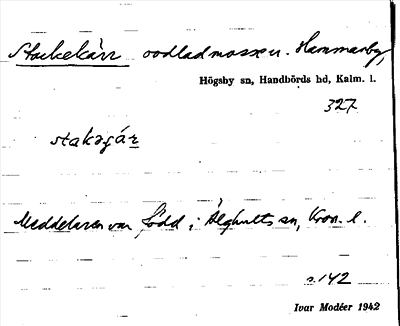 Stackekärr oodlad mosse u. Hammarby,
Högsby sn, Handbörds hd, Kalm. l.
327
stakəçár
Meddelaren var född i Älghults sn, Kron. l.
s. 142
Ivar Modéer 1942